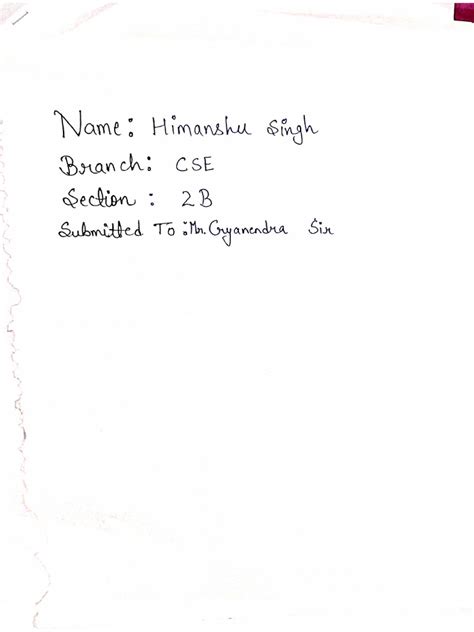 Name: Himanshu Singh
Branch: CSE
Section : 2B
Submitted To : Mr. Gyanendra Sir